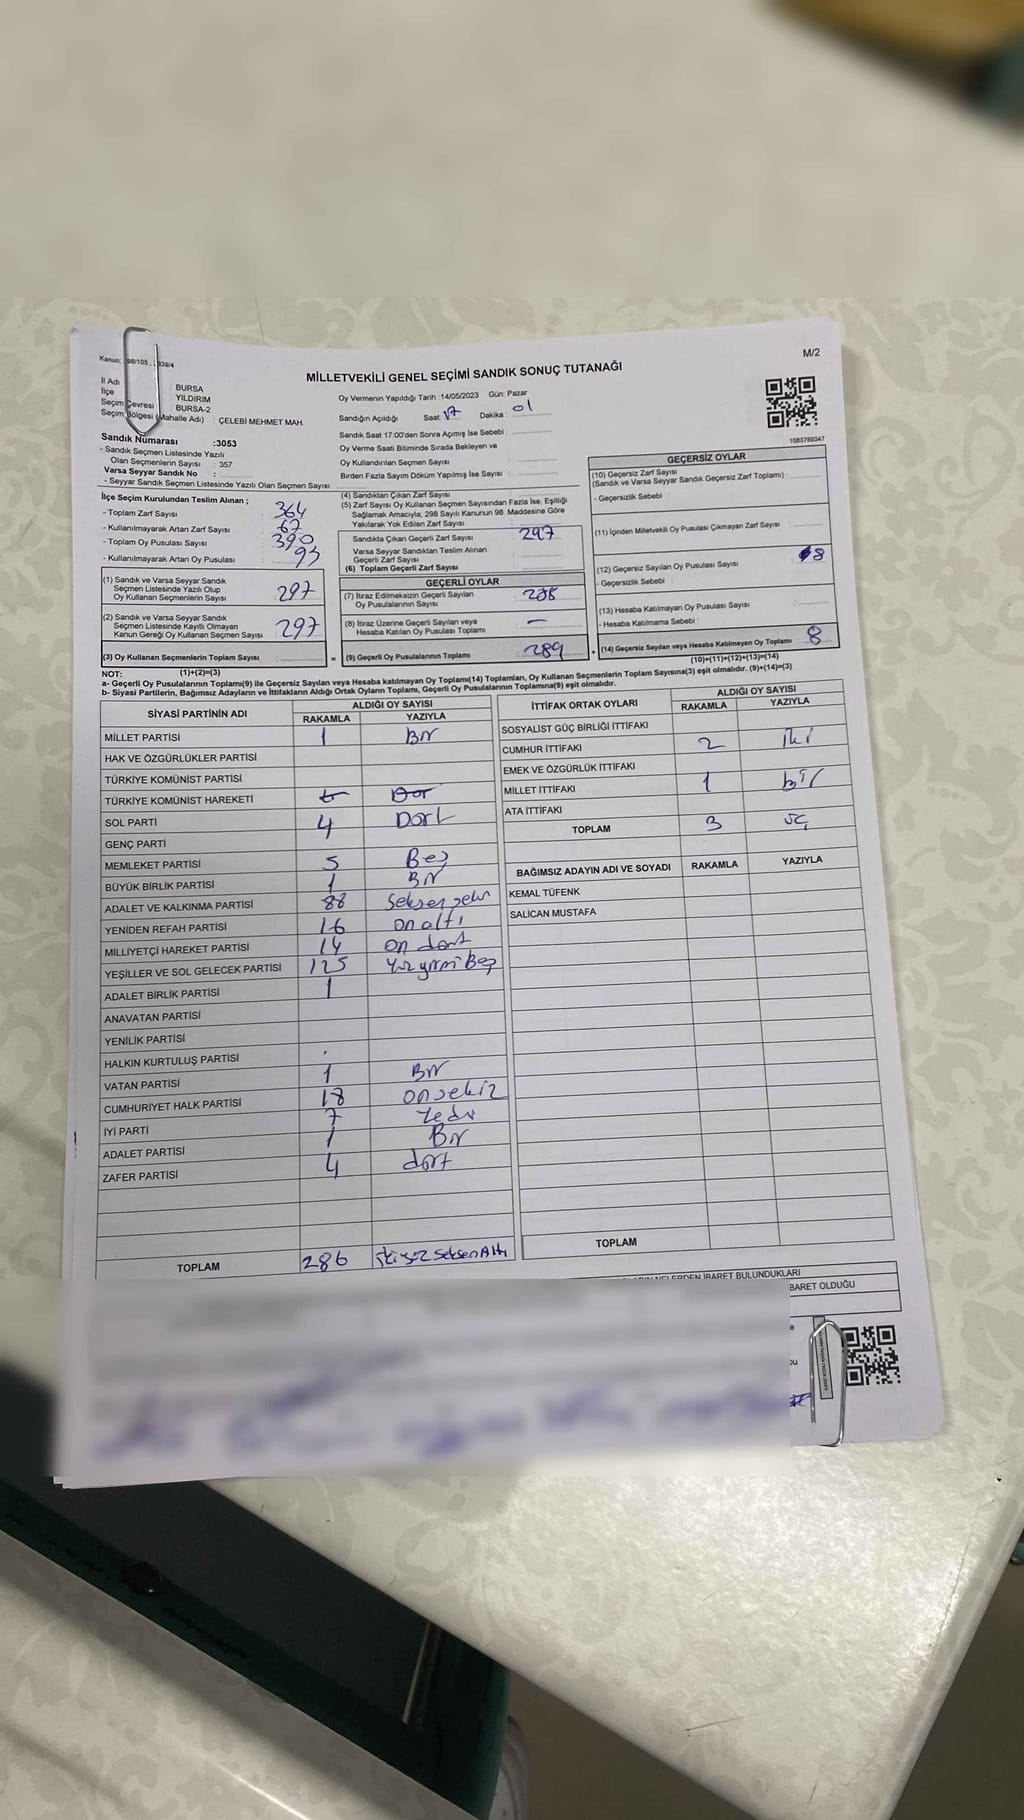 Kanun: 98/105
M/2
MİLLETVEKİLİ GENEL SEÇİMİ SANDIK SONUÇ TUTANAĞI
İl Adı : BURSA
İlçe : YILDIRIM
Seçim Çevresi : BURSA-2
Seçim Bölgesi (Mahalle Adı) : ÇELEBİ MEHMET MAH.
Sandık Numarası :3053
- Sandık Seçmen Listesinde Yazılı
Olan Seçmenlerin Sayısı : 357
Varsa Seyyar Sandık No :
- Seyyar Sandık Seçmen Listesinde Yazılı Olan Seçmen Sayısı:
Oy Vermenin Yapıldığı Tarih :14/05/2023 Gün: Pazar
Sandığın Açıldığı Saat: 17 Dakika : 01
Sandık Saat 17:00'den Sonra Açımış İse Sebebi :
Oy Verme Saati Bitiminde Sırada Bekleyen ve
Oy Kullandırılan Seçmen Sayısı :
Birden Fazla Sayım Döküm Yapılmış İse Sayısı :
1083789347
İlçe Seçim Kurulundan Teslim Alınan ;
- Toplam Zarf Sayısı : 364
- Kullanılmayarak Artan Zarf Sayısı : 67
- Toplam Oy Pusulası Sayısı : 390
- Kullanılmayarak Artan Oy Pusulası : 93
(1) Sandık ve Varsa Seyyar Sandık
Seçmen Listesinde Yazılı Olup
Oy Kullanan Seçmenlerin Sayısı : 297
(2) Sandık ve Varsa Seyyar Sandık
Seçmen Listesinde Kayıtlı Olmayan
Kanun Gereği Oy Kullanan Seçmen Sayısı : 297
(3) Oy Kullanan Seçmenlerin Toplam Sayısı :
(4) Sandıktan Çıkan Zarf Sayısı :
(5) Zarf Sayısı Oy Kullanan Seçmen Sayısından Fazla İse, Eşitliği
Sağlamak Amacıyla, 298 Sayılı Kanunun 98. Maddesine Göre
Yakılarak Yok Edilen Zarf Sayısı :
Sandıkta Çıkan Geçerli Zarf Sayısı : 297
Varsa Seyyar Sandıktan Teslim Alınan
Geçerli Zarf Sayısı :
(6) Toplam Geçerli Zarf Sayısı :
GEÇERLİ OYLAR
(7) İtiraz Edilmeksizin Geçerli Sayılan
Oy Pusulalarının Sayısı :
(8) İtiraz Üzerine Geçerli Sayılan veya
Hesaba Katılan Oy Pusulası Toplamı : —
= (9) Geçerli Oy Pusulalarının Toplamı : 289
GEÇERSİZ OYLAR
(10) Geçersiz Zarf Sayısı
(Sandık ve Varsa Seyyar Sandık Geçersiz Zarf Toplamı) :
- Geçersizlik Sebebi :
(11) İçinden Milletvekili Oy Pusulası Çıkmayan Zarf Sayısı :
(12) Geçersiz Sayılan Oy Pusulası Sayısı : 8
- Geçersizlik Sebebi :
(13) Hesaba Katılmayan Oy Pusulası Sayısı :
- Hesaba Katılmama Sebebi :
+ (14) Geçersiz Sayılan veya Hesaba Katılmayan Oy Toplamı : 8
(10)+(11)+(12)+(13)=(14)
NOT: (1)+(2)=(3)
a- Geçerli Oy Pusulalarının Toplamı(9) ile Geçersiz Sayılan veya Hesaba Katılmayan Oy Toplamı(14) Toplamları, Oy Kullanan Seçmenlerin Toplam Sayısına(3) eşit olmalıdır. (9)+(14)=(3)
b- Siyasi Partilerin, Bağımsız Adayların ve İttifakların Aldığı Ortak Oyların Toplamı, Geçerli Oy Pusulalarının Toplamına(9) eşit olmalıdır.
SİYASİ PARTİNİN ADI ALDIĞI OY SAYISI
RAKAMLA YAZIYLA
MİLLET PARTİSİ 1 Bir
HAK VE ÖZGÜRLÜKLER PARTİSİ
TÜRKİYE KOMÜNİST PARTİSİ
TÜRKİYE KOMÜNİST HAREKETİ
SOL PARTİ 4 Dört
GENÇ PARTİ
MEMLEKET PARTİSİ 5 Beş
BÜYÜK BİRLİK PARTİSİ 1 Bir
ADALET VE KALKINMA PARTİSİ 88 Seksen sekiz
YENİDEN REFAH PARTİSİ 16 on altı
MİLLİYETÇİ HAREKET PARTİSİ 14 on dört
YEŞİLLER VE SOL GELECEK PARTİSİ 125 Yüz yirmi Beş
ADALET BİRLİK PARTİSİ 1
ANAVATAN PARTİSİ
YENİLİK PARTİSİ
HALKIN KURTULUŞ PARTİSİ
VATAN PARTİSİ 1 Bir
CUMHURİYET HALK PARTİSİ 18 onsekiz
İYİ PARTİ 7 Yedi
ADALET PARTİSİ 1 Bir
ZAFER PARTİSİ 4 dört
TOPLAM 286 ikiyüz seksen Altı
İTTİFAK ORTAK OYLARI ALDIĞI OY SAYISI
RAKAMLA YAZIYLA
SOSYALİST GÜÇ BİRLİĞİ İTTİFAKI
CUMHUR İTTİFAKI 2 iki
EMEK VE ÖZGÜRLÜK İTTİFAKI
MİLLET İTTİFAKI 1 bir
ATA İTTİFAKI
TOPLAM 3 üç
BAĞIMSIZ ADAYIN ADI VE SOYADI RAKAMLA YAZIYLA
KEMAL TÜFENK
SALİCAN MUSTAFA
TOPLAM
NELERDEN İBARET BULUNDUKLARI
BARET OLDUĞU